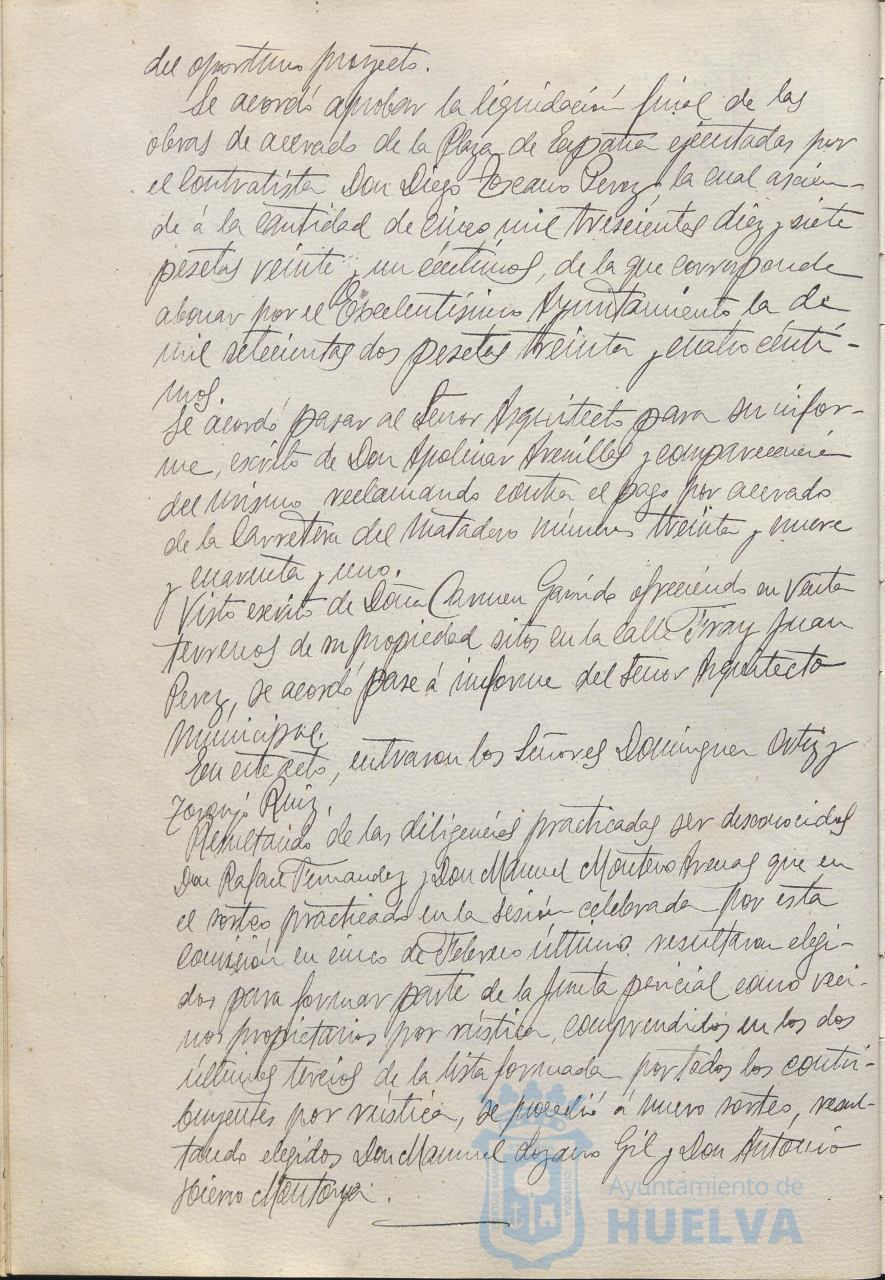 del oportuno proyecto.
Se acordó aprobar la liquidación final de las
obras de acerado de la Plaza de España ejecutadas por
el Contratista Don Diego Toscano Perez, la cual ascien-
de á la cantidad de cinco mil trescientas diez y siete
pesetas veinte y un céntimos, de la que corresponde
abonar por el Excelentísimo Ayuntamiento la de
mil setecientas dos pesetas treinta y cuatro cénti-
mos.
Se acordó pasar al Señor Arquitecto para su infor-
me, escrito de Don Apolinar Arenillas y comparecencia
del mismo reclamando contra el pago por acerado
de la Carretera del Matadero números treinta y nueve
y cuarenta y uno.
Visto escrito de Doña Carmen Garrido ofreciendo en venta
terrenos de su propiedad sitos en la calle Fray Juan
Perez, se acordó pase á informe del Señor Arquitecto
Municipal.
En este acto, entraron los Señores Dominguez Ortiz y
Toronjo Ruiz.
Resultando de las diligencias practicadas ser desconocidos
Don Rafael Fernandez y Don Manuel Montero Arenas que en
el sorteo practicado en la sesión celebrada por esta
Comisión en cinco de Febrero último resultaron elegi-
dos para formar parte de la Junta pericial como veci-
nos propietarios por rústica, comprendidos en los dos
últimos tercios de la lista formada por todos los contri-
buyentes por rústica, se procedió á nuevo sorteo, resul-
tando elegidos Don Manuel Lozano Gil y Don Antonio
Hierro Montoya.
Ayuntamiento de
HUELVA